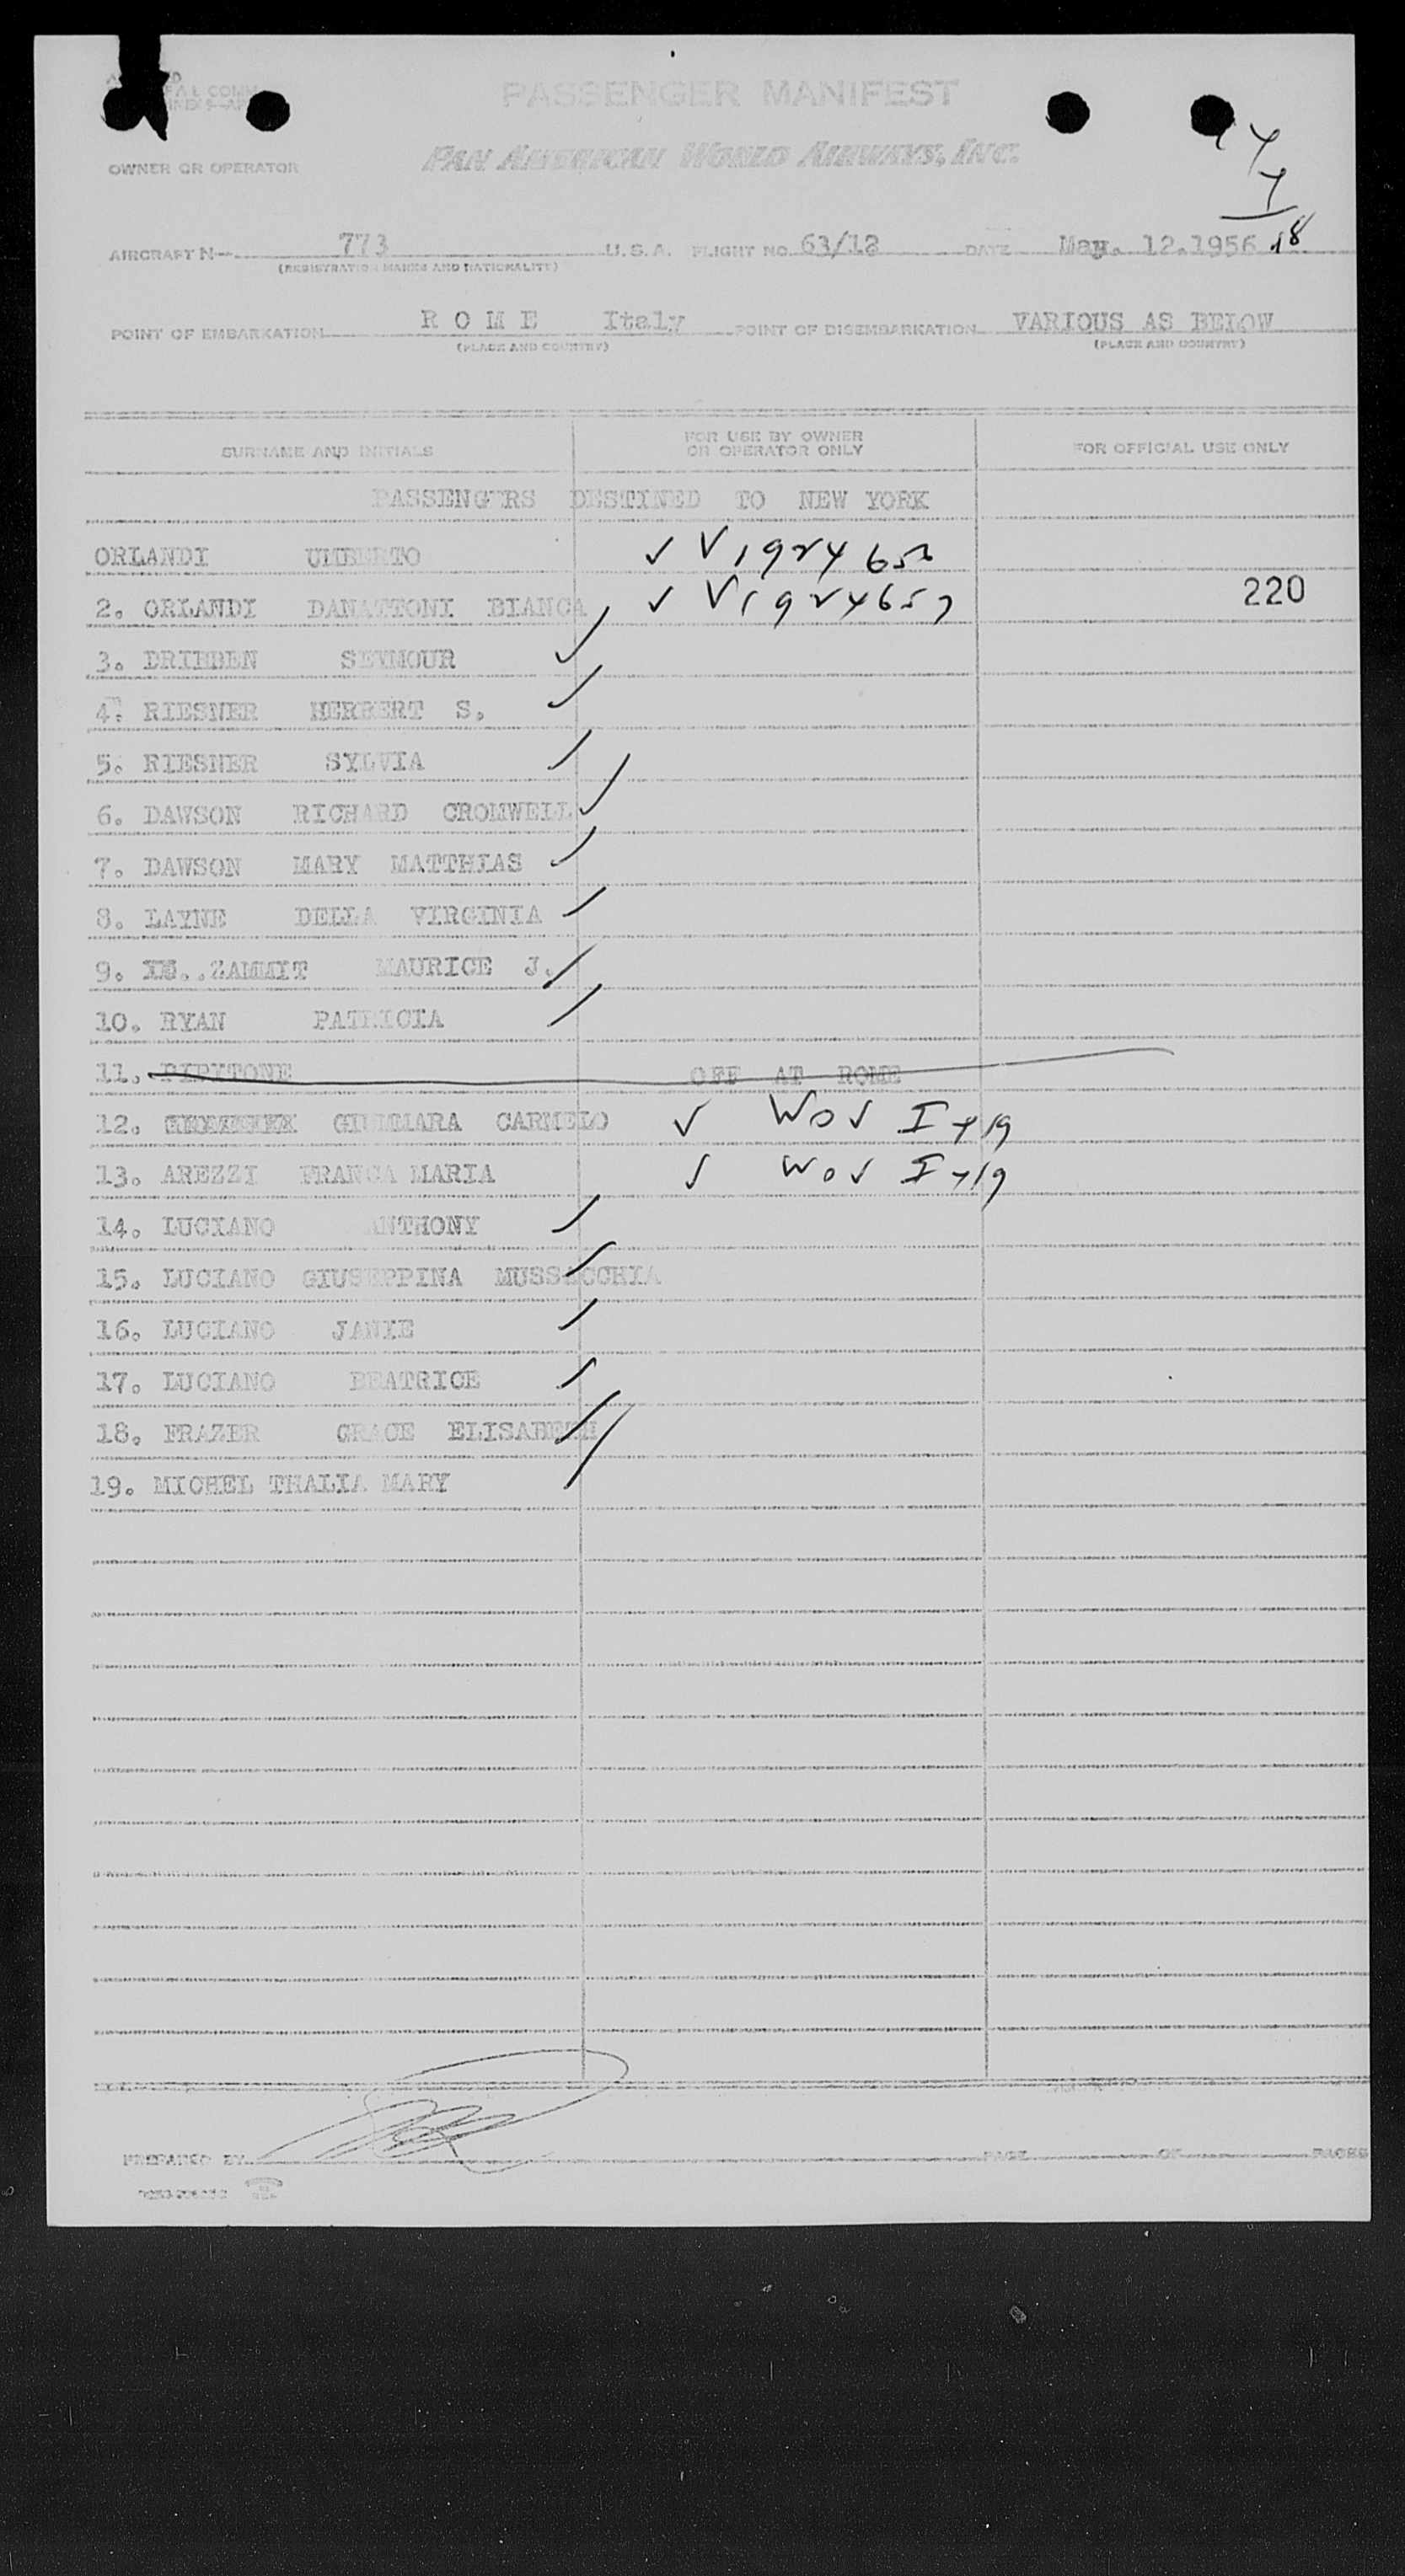 PASSENGER MANIFEST
OWNER OR OPERATOR PAN AMERICAN WORLD AIRWAYS, INC.
AIRCRAFT N— 773 U.S.A. FLIGHT NO. 63/12 DATE May. 12.1956 18
(REGISTRATION MARKS AND NATIONALITY)
POINT OF EMBARKATION R O M E Italy POINT OF DISEMBARKATION VARIOUS AS BELOW
(PLACE AND COUNTRY) (PLACE AND COUNTRY)
SURNAME AND INITIALS FOR USE BY OWNER OR OPERATOR ONLY FOR OFFICIAL USE ONLY
PASSENGERS DESTINED TO NEW YORK
ORLANDI UMBERTO ✓ V1924652
2. ORLANDI DANATTONI BIANCA ✓ V1924659 220
3. DRIBBEN SEYMOUR
4. RIESNER HERBERT S.
5. RIESNER SYLVIA
6. DAWSON RICHARD CROMWELL
7. DAWSON MARY MATTHIAS
8. LAYNE DELLA VIRGINIA
9. ZAMMIT MAURICE J.
10. RYAN PATRICIA
11. PIPITONE OFF AT ROME
12. GIUMMARA CARMELO ✓ WOV
13. AREZZI FRANCA MARIA ✓ WOV
14. LUCIANO ANTHONY
15. LUCIANO GIUSEPPINA MUSSACCHIA
16. LUCIANO JANIE
17. LUCIANO BEATRICE
18. FRAZER GRACE ELISABETH
19. MICHEL THALIA MARY
PREPARED BY PAGE OF PAGES